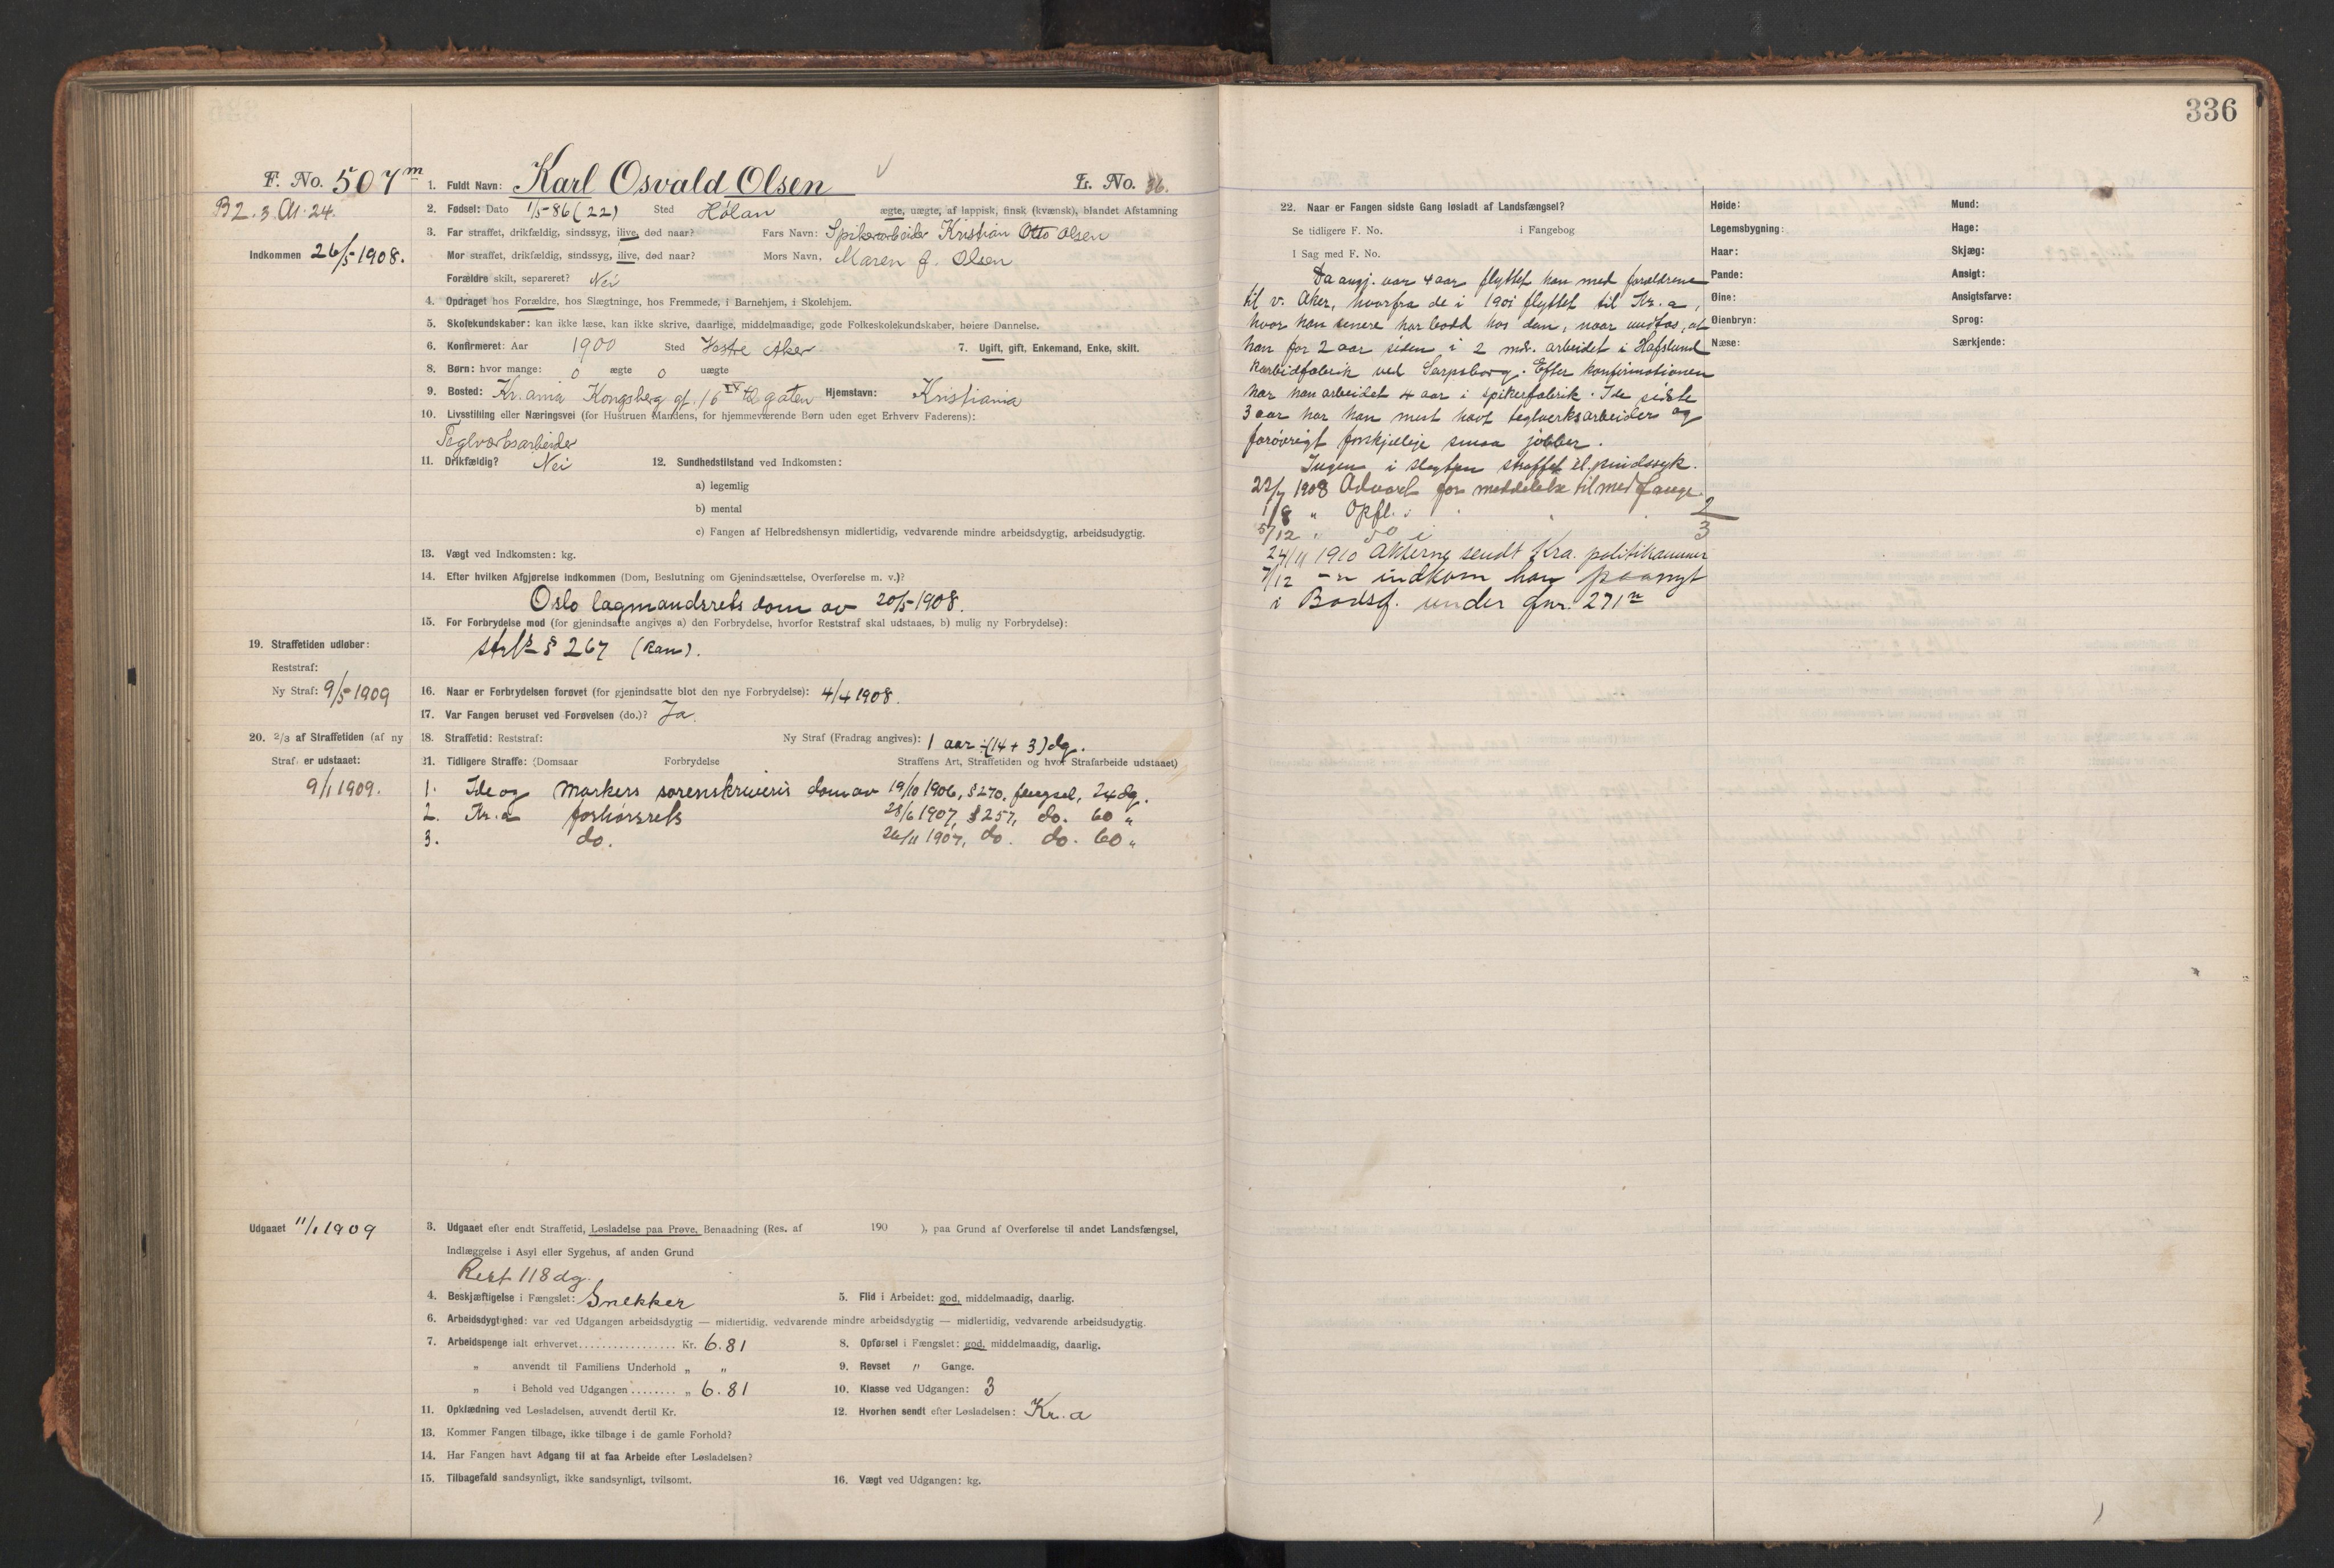 336
F. No. 507 m
1. Fuldt Navn: Karl Osvald Olsen
L. No. 36.
B 2. 3. Al. 24.
2. Fødsel: Dato 1/5-86 (22) Sted Hölan ægte, uægte, af lappisk, finsk (kvænsk), blandet Afstamning
3. Far straffet, drikfældig, sindssyg, ilive, død naar? Fars Navn: Spikerarbeider Kristian Otto Olsen
Indkommen 26/5 1908.
Mor straffet, drikfældig, sindssyg, ilive, død naar? Mors Navn, Maren f. Olsen
Forældre skilt, separeret? Nei
4. Opdraget hos Forældre, hos Slægtninge, hos Fremmede, i Barnehjem, i Skolehjem.
5. Skolekundskaber: kan ikke læse, kan ikke skrive, daarlige, middelmaadige, gode Folkeskolekundskaber, høiere Dannelse.
6. Konfirmeret: Aar 1900 Sted Vestre Aker 7. Ugift, gift, Enkemand, Enke, skilt.
8. Børn: hvor mange: 0 ægte 0 uægte
9. Bosted: Kr.ania Kongsberg gt. 16 IV til gaten Hjemstavn: Kristiania
10. Livsstilling eller Næringsvei (for Hustruen Mandens, for hjemmeværende Børn uden eget Erhverv Faderens):
Teglverksarbeider
11. Drikfældig? Nei 12. Sundhedstilstand ved Indkomsten:
a) legemlig
b) mental
c) Fangen af Helbredshensyn midlertidig, vedvarende mindre arbeidsdygtig, arbeidsudygtig.
13. Vægt ved Indkomsten: kg.
14. Efter hvilken Afgjørelse indkommen (Dom, Beslutning om Gjenindsættelse, Overførelse m. v.)?
Oslo lagmandsrets dom av 20/5-1908.
15. For Forbrydelse mod (for gjenindsatte angives a) den Forbrydelse, hvorfor Reststraf skal udstaaes, b) mulig ny Forbrydelse):
19. Straffetiden udløber:
strl § 267 (Ran).
Reststraf:
Ny Straf: 9/5 1909
16. Naar er Forbrydelsen forøvet (for gjenindsatte blot den nye Forbrydelse): 4/4 1908.
17. Var Fangen beruset ved Forøvelsen (do.)? Ja.
20. 2/3 af Straffetiden (af ny Straf) er udstaaet:
18. Straffetid: Reststraf: Ny Straf (Fradrag angives): 1 aar ÷(14 + 3) dg.
21. Tidligere Straffe: (Domsaar Forbrydelse Straffens Art, Straffetiden og hvor Strafarbeide udstaaet)
9/1 1909.
1. Ide og Markers sorenskriveris dom av 19/10 1906, § 270, fængsel, 24 dg.
2. Kr.a forhörsrets 28/6 1907, § 257, do. 60 "
3. do. 26/11 1907, do. do. 60 "
Udgaaet 11/1 1909
3. Udgaaet efter endt Straffetid, Løsladelse paa Prøve, Benaadning (Res. af 190 ), paa Grund af Overførelse til andet Landsfængsel,
Indlæggelse i Asyl eller Sygehus, af anden Grund
Rest 118 dg.
4. Beskjæftigelse i Fængslet: Snekker 5. Flid i Arbeidet: god, middelmaadig, daarlig.
6. Arbeidsdygtighed: var ved Udgangen arbeidsdygtig — midlertidig, vedvarende mindre arbeidsdygtig — midlertidig, vedvarende arbeidsudygtig.
7. Arbeidspenge ialt erhvervet Kr. 6.81 8. Opførsel i Fængslet: god, middelmaadig, daarlig.
" anvendt til Familiens Underhold " " 9. Revset " Gange.
" i Behold ved Udgangen " 6.81 10. Klasse ved Udgangen: 3
11. Opklædning ved Løsladelsen, anvendt dertil Kr. 12. Hvorhen sendt efter Løsladelsen: Kr.a
13. Kommer Fangen tilbage, ikke tilbage i de gamle Forhold?
14. Har Fangen havt Adgang til at faa Arbeide efter Løsladelsen?
15. Tilbagefald sandsynligt, ikke sandsynligt, tvilsomt. 16. Vægt ved Udgangen: kg.
22. Naar er Fangen sidste Gang løsladt af Landsfængsel?
Se tidligere F. No. i Fangebog
I Sag med F. No.
Da angj. var 4 aar flyttet han med forældrene
til v. Aker, hvorfra de i 1901 flyttet til Kr.a,
hvor han senere har bodd hos dem, naar undtas, at
han for 2 aar siden i 2 mdr. arbeidet i Hafslund
Karbidfabrik ved Sarpsborg. Efter konfirmationen
har han arbeidet 4 aar i spikerfabrik. I de sidste
3 aar har han mest havt teglverksarbeider og
forøvrigt forskjellige smaa jobber.
Ingen i slegten straffet el. sindssyk.
22/7 1908 Advaret for meddelelse til medfange.
1/8 " Opfl. i 2
5/12 " do i 3
24/11 1910 Akterne sendt Kra. politikammer
7/12 –"– indkom han paanyt
i Bodsf. under fnr. 271 n
Høide: Mund:
Legemsbygning: Hage:
Haar: Skjæg:
Pande: Ansigt:
Øine: Ansigtsfarve:
Øienbryn: Sprog:
Næse: Særkjende: